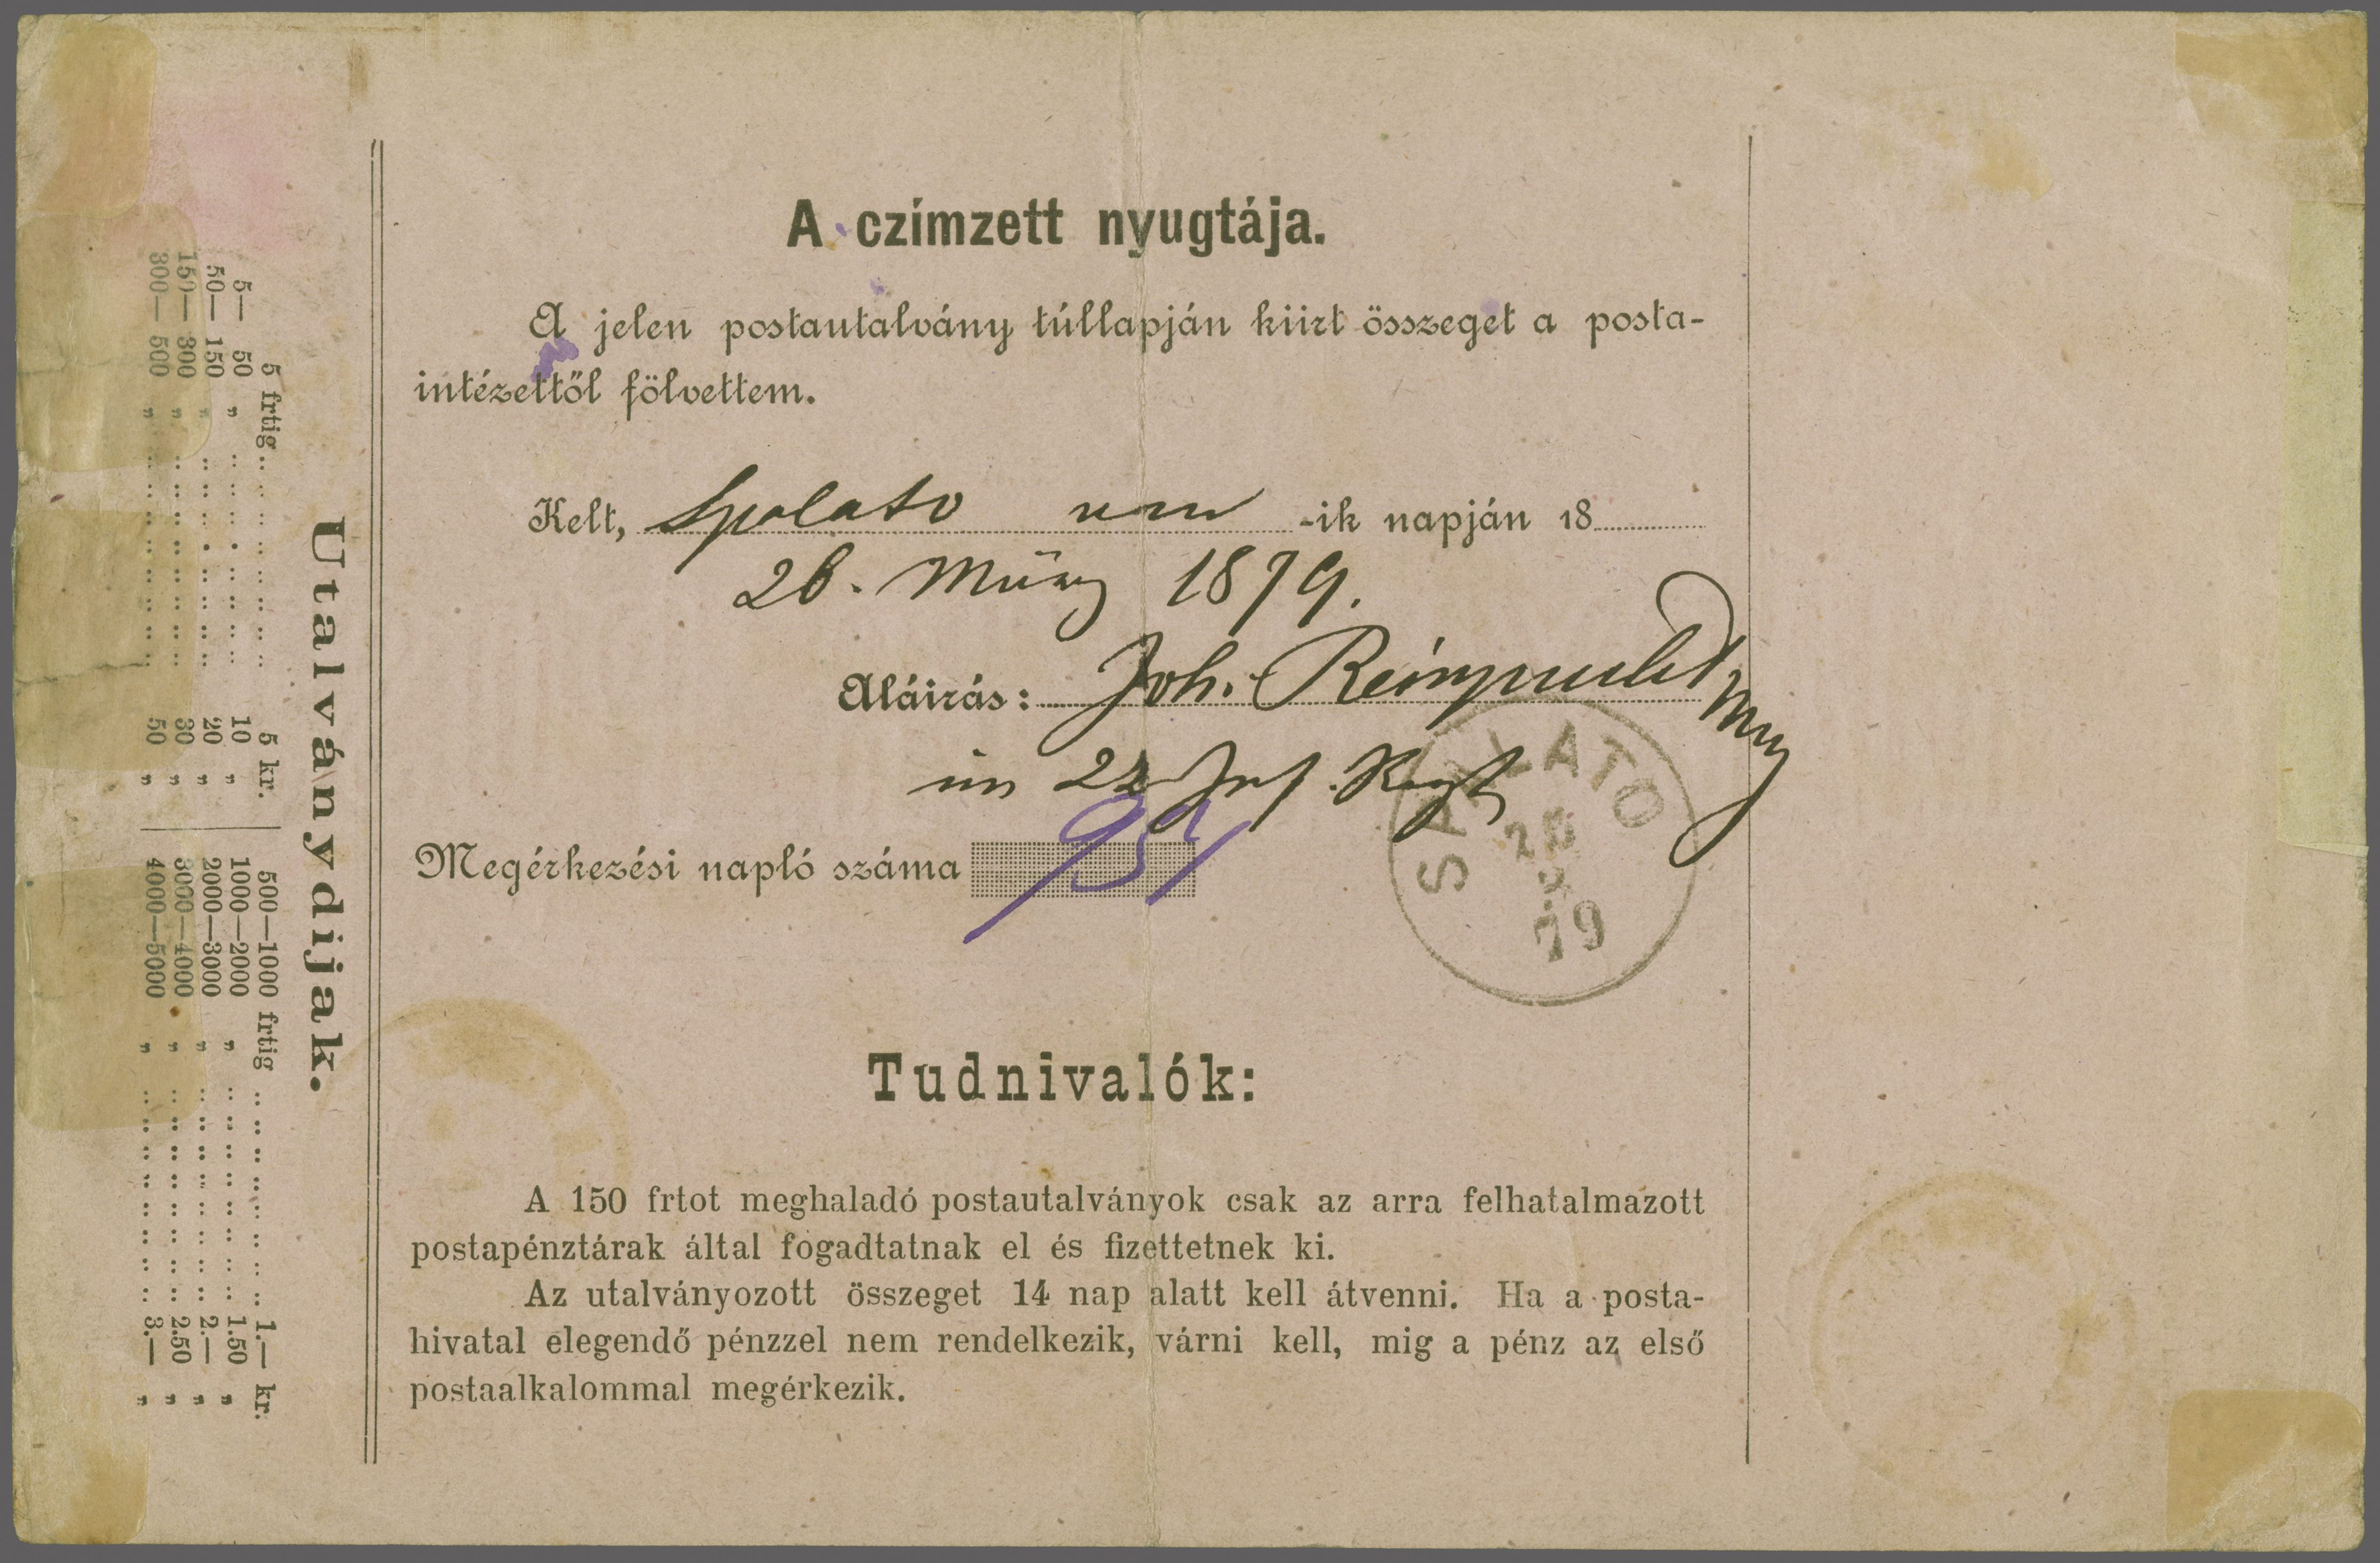 A czímzett nyugtája.
A jelen postautalvány túllapján kiirt összeget a posta-
intézettől fölvettem.
Kelt, Spalato -ik napján 18
26. März 1879.
Aláirás: Joh.
im 22 Inf. Regt
Megérkezési napló száma 951
SPALATO
79
Tudnivalók:
A 150 frtot meghaladó postautalványok csak az arra felhatalmazott
postapénztárak által fogadtatnak el és fizettetnek ki.
Az utalványozott összeget 14 nap alatt kell átvenni. Ha a posta-
hivatal elegendő pénzzel nem rendelkezik, várni kell, mig a pénz az első
postaalkalommal megérkezik.
Utalványdijak.
5 frtig .. .. .. .. .. .. .. 5 kr.
5— 50 „ .. .. .. .. .. .. 10 „
50— 150 „ .. .. .. .. .. .. 20 „
150— 300 „ .. .. .. .. .. .. 30 „
300— 500 „ .. .. .. .. .. .. 50 „
500—1000 frtig .. .. .. .. .. .. .. 1.— kr.
1000—2000 „ .. .. .. .. .. .. .. 1.50 „
2000—3000 „ .. .. .. .. .. .. .. 2.— „
3000—4000 „ .. .. .. .. .. .. .. 2.50 „
4000—5000 „ .. .. .. .. .. .. .. 3.— „